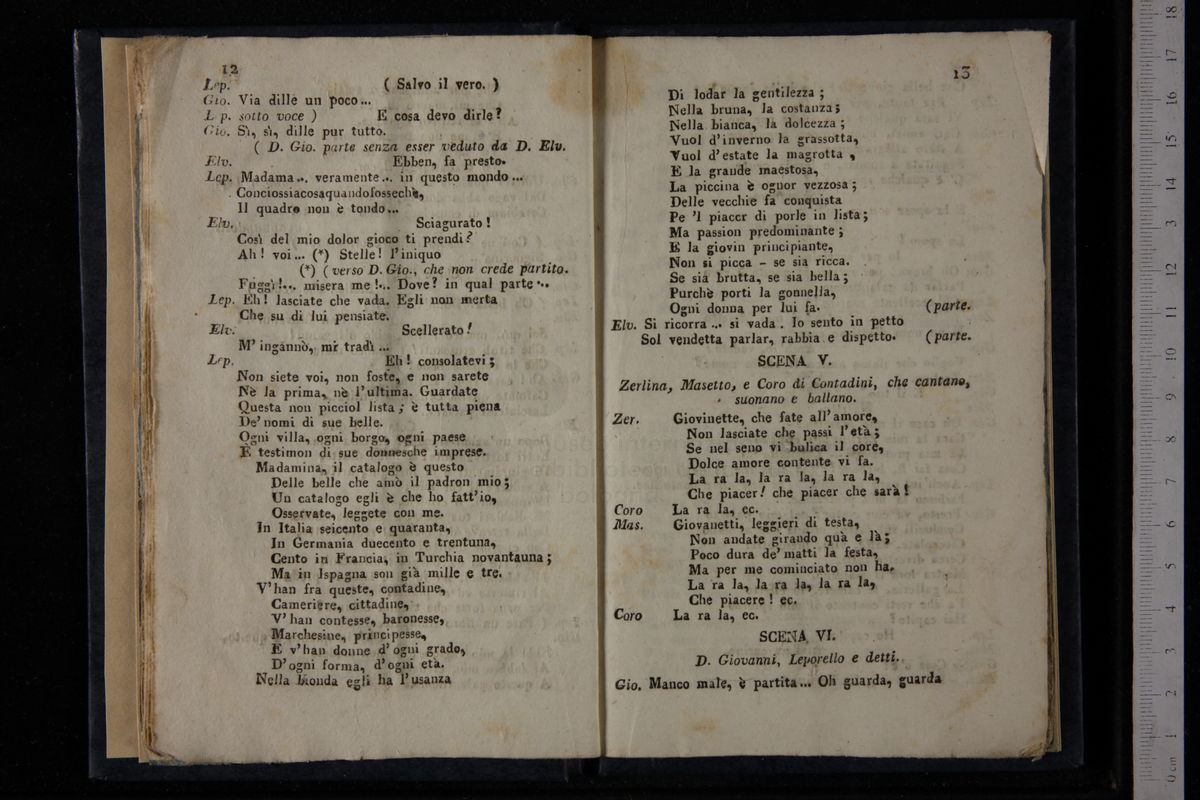 12
Lep. ( Salvo il vero. )
Gio. Via dille un poco...
Lep. sotto voce ) E cosa devo dirle?
Gio. Sì, sì, dille pur tutto.
( D. Gio. parte senza esser veduto da D. Elv.
Elv. Ebben, fa presto.
Lep. Madama... veramente... in questo mondo...
Conciossiacosaquandofossechè,
Il quadro non è tondo...
Elv. Sciagurato!
Così del mio dolor gioco ti prendi?
Ah! voi... (*) Stelle! l'iniquo
(*) ( verso D. Gio., che non crede partito.
Fuggì!... misera me!... Dove? in qual parte...
Lep. Eh! lasciate che vada. Egli non merta
Che su di lui pensiate.
Elv. Scellerato!
M'ingannò, mi tradì...
Lep. Eh! consolatevi;
Non siete voi, non foste, e non sarete
Nè la prima, nè l'ultima. Guardate
Questa non picciol lista; è tutta piena
De' nomi di sue belle.
Ogni villa, ogni borgo, ogni paese
È testimon di sue donnesche imprese.
Madamina, il catalogo è questo
Delle belle che amò il padron mio;
Un catalogo egli è che ho fatt'io,
Osservate, leggete con me.
In Italia seicento e quaranta,
In Germania duecento e trentuna,
Cento in Francia, in Turchia novantauna;
Ma in Ispagna son già mille e tre.
V'han fra queste, contadine,
Cameriere, cittadine,
V'han contesse, baronesse,
Marchesine, principesse,
E v'han donne d'ogni grado,
D'ogni forma, d'ogni età.
Nella bionda egli ha l'usanza
13
Di lodar la gentilezza;
Nella bruna, la costanza;
Nella bianca, la dolcezza;
Vuol d'inverno la grassotta,
Vuol d'estate la magrotta,
E la grande maestosa,
La piccina è ognor vezzosa;
Delle vecchie fa conquista
Pe 'l piacer di porle in lista;
Ma passion predominante;
E la giovin principiante,
Non si picca - se sia ricca.
Se sia brutta, se sia bella;
Purchè porti la gonnella,
Ogni donna per lui fa. (parte.
Elv. Si ricorra... si vada. Io sento in petto
Sol vendetta parlar, rabbia e dispetto. (parte.
SCENA V.
Zerlina, Masetto, e Coro di Contadini, che cantano,
suonano e ballano.
Zer. Giovinette, che fate all'amore,
Non lasciate che passi l'età;
Se nel seno vi bulica il core,
Dolce amore contente vi fa.
La ra la, la ra la, la ra la,
Che piacer! che piacer che sarà!
Coro La ra la, ec.
Mas. Giovanetti, leggieri di testa,
Non andate girando quà e là;
Poco dura de' matti la festa,
Ma per me cominciato non ha.
La ra la, la ra la, la ra la,
Che piacere! ec.
Coro La ra la, ec.
SCENA VI.
D. Giovanni, Leporello e detti.
Gio. Manco male, è partita... Oh guarda, guarda
0 cm 1 2 3 4 5 6 7 8 9 10 11 12 13 14 15 16 17 18